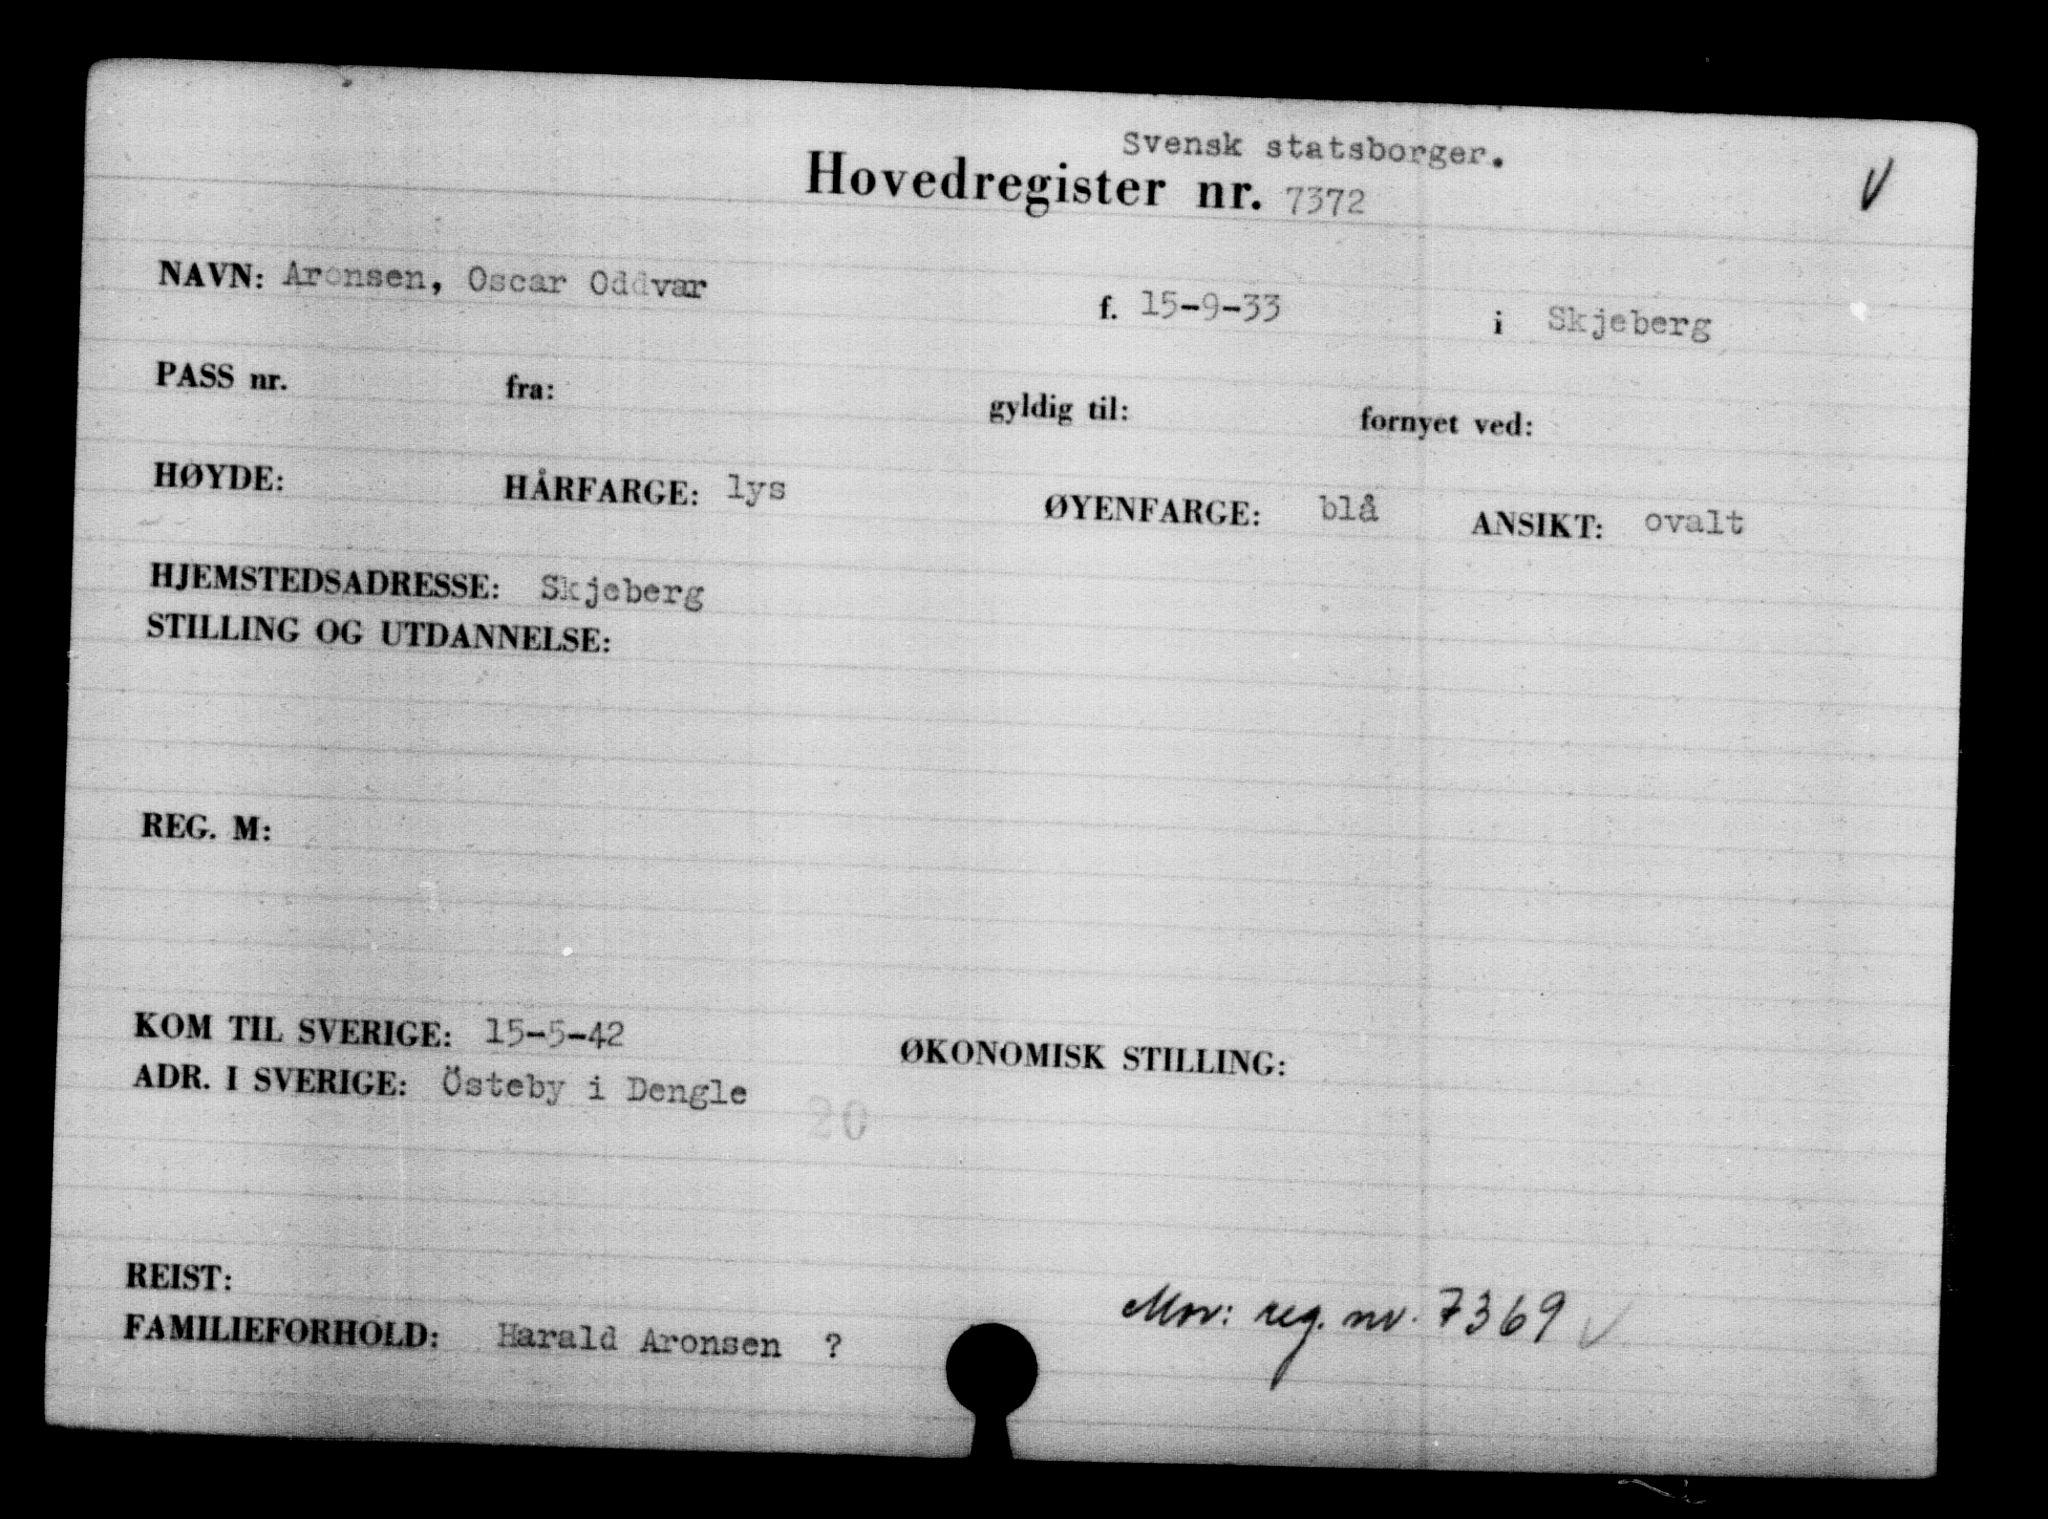 Svensk statsborger.
Hovedregister nr. 7372
NAVN: Aronsen, Oscar Oddvar f. 15-9-33 i Skjeberg
PASS nr. fra: gyldig til: fornyet ved:
HØYDE: HÅRFARGE: lys ØYENFARGE: blå ANSIKT: ovalt
HJEMSTEDSADRESSE: Skjeberg
STILLING OG UTDANNELSE:
REG. M:
KOM TIL SVERIGE: 15-5-42 ØKONOMISK STILLING:
ADR. I SVERIGE: Östeby i Dengle
20
REIST:
Mor: reg. nr. 7369
FAMILIEFORHOLD: Harald Aronsen ?